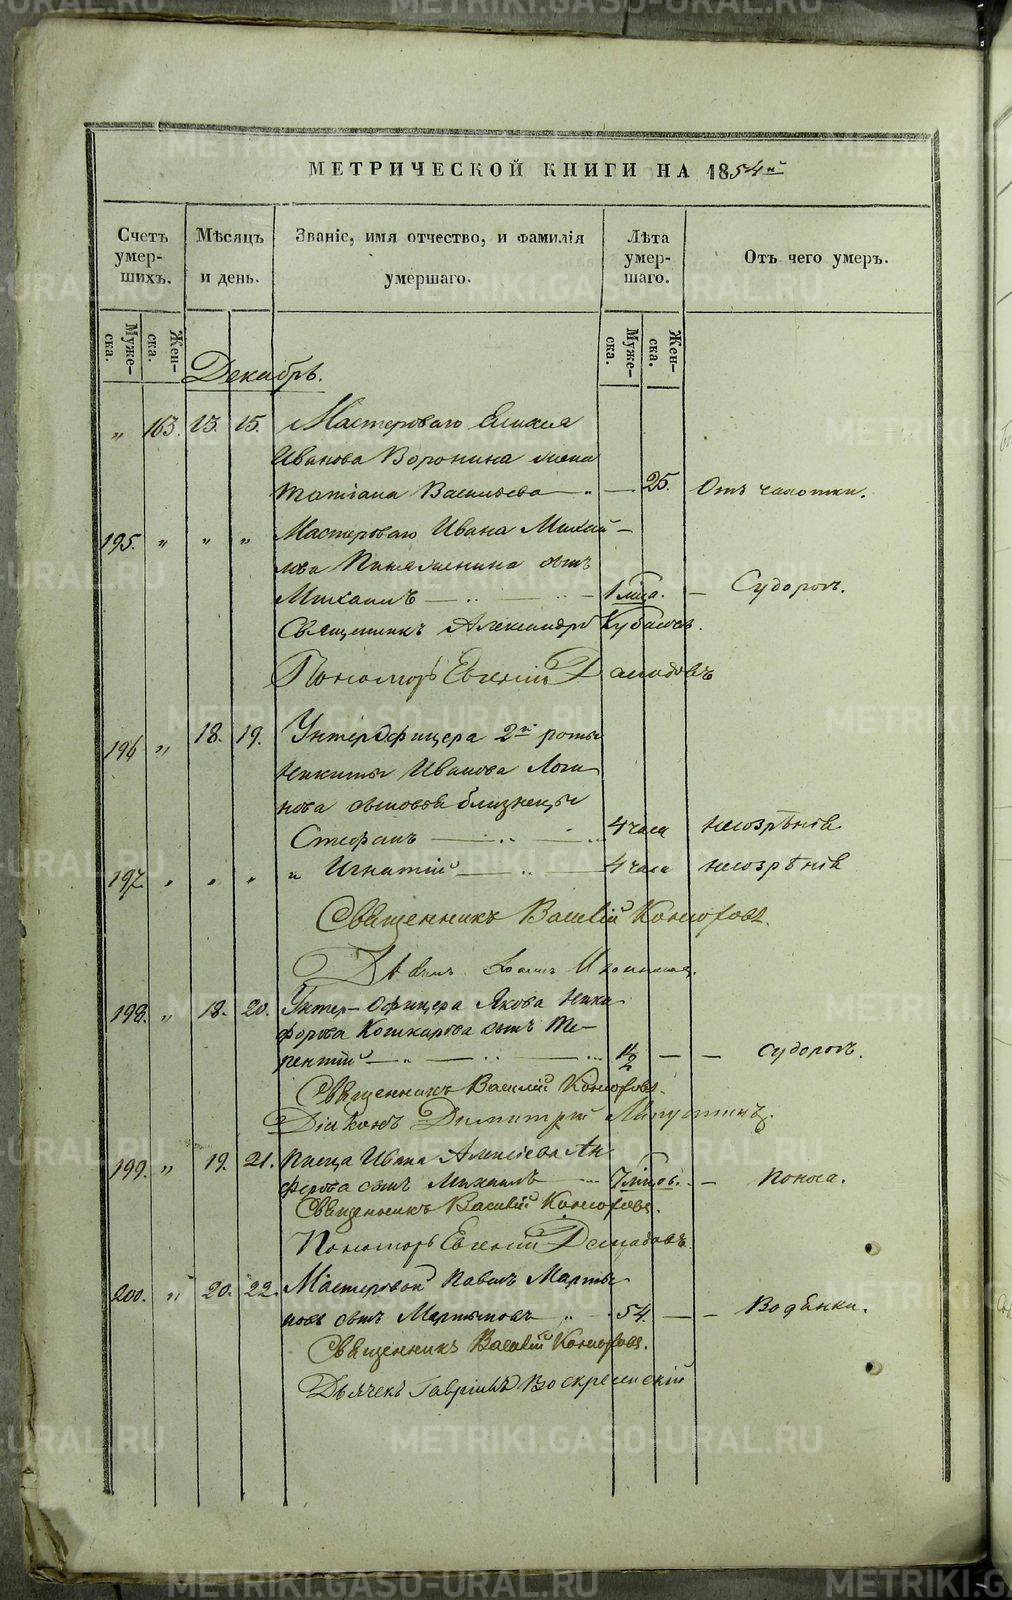 МЕТРИЧЕСКОЙ КНИГИ НА 1854й
Счетъ умер-шихъ. Мѣсяцъ и день. Званіе, имя отчество, и фамилія умершаго. Лѣта умер-шаго. Отъ чего умеръ.
Муже-ска. Жен-ска. Муже-ска. Жен-ска.
Декабрь.
„ 163. 13. 15. Мастероваго Елисея
Иванова Воронина жена
Татіана Васильева — „ — 25. Отъ чахотки.
195. „ „ „ Мастероваго Ивана Михай-
лова сынъ
Михаилъ — 1 мѣсяца. — Судорогъ.
Священникъ Александръ
Пономарь Евгеній Демидовъ
196 „ 18. 19. Унтеръ Офицера 2й роты
Никиты Иванова Логи
нова сыновья близнецы
Стефанъ — 4 часа незрѣнія
197. „ „ „ „ Игнатій — 4 часа незрѣнія
Священникъ Василій
198. „ 18. 20. Унтер-Офицера Якова Ники
форова Кошкарова сынъ Те-
рентій — „ — ½ — — Судорогъ.
Священникъ Василій
Діаконъ Димитрій Лапустинъ.
199. „ 19. 21. Писца Ивана Алексѣева Ан
ферова сынъ Михаилъ — 7 мѣсцов. — Поноса.
Священникъ Василій
Пономарь Евгеній Демидовъ
200. „ 20. 22. Мастеровой Павелъ Марты
новъ сынъ Мартыновъ „ 54. — — Водянки.
Священникъ Василій
Дьячекъ Гавріилъ Воскресенскій
METRIKI.GASO-URAL.RU